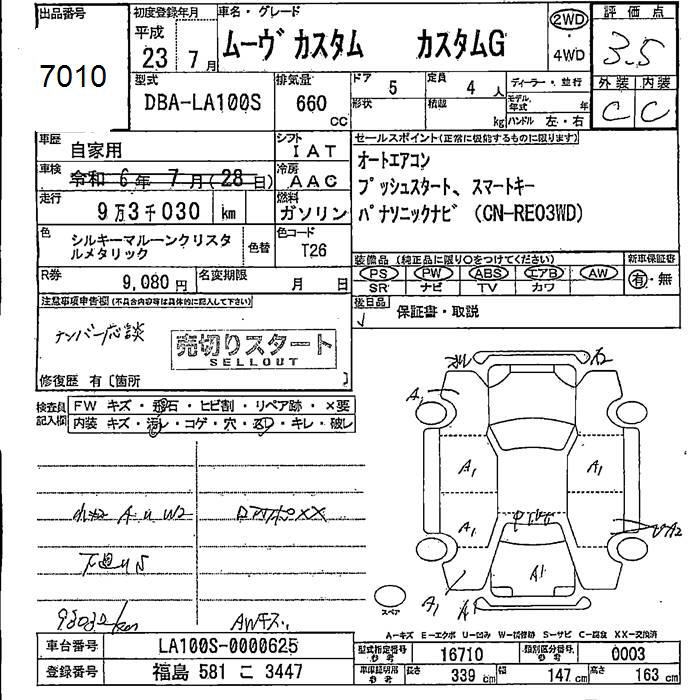 出品番号 初度登録年月 車名・グレード 2WD 評価点
7010 平成 23 7月 ムーヴカスタム カスタムG 4WD 3.5
型式 排気量 ドア 5 定員 4人 ディーラー・並行 外装 内装
DBA-LA100S 660 cc 形状 積載 kg モデル年式 年 C C
ハンドル 左・右
車歴 自家用 シフト IAT セールスポイント(正常に機能するものに限ります)
車検 令和 6年 7月(28日) 冷房 AAC オートエアコン
走行 9万3千030 km 燃料 ガソリン プッシュスタート、スマートキー
パナソニックナビ(CN-RE03WD)
色 シルキーマルーンクリスタルメタリック 色替 色コード T26
装備品(純正品に限り○をつけてください) 新車保証書
R券 9,080円 名変期限 月 日 PS PW ABS エアB AW 有・無
SR ナビ TV カワ
注意事項申告欄(不具合内容等は具体的に記入して下さい) 後日品 保証書・取説
ナンバー応談
売切りスタート
SELLOUT
修復歴 有〔箇所 〕
検査員記入欄 FW キズ・飛石・ヒビ割・リペア跡・×要
内装 キズ・汚レ・コゲ・穴・スレ・キレ・破レ
A1
A1 A1
A1 A2
A1
A1
スペア
93030km AWキズ
A-キズ E-エクボ U-凹み W-補修跡 S-サビ C-腐食 XX-交換済
車台番号 LA100S-0000625 型式指定番号 参考 16710 類別区分番号 参考 0003
登録番号 福島 581 こ 3447 車庫証明用 参考 長さ 339 cm 幅 147 cm 高さ 163 cm